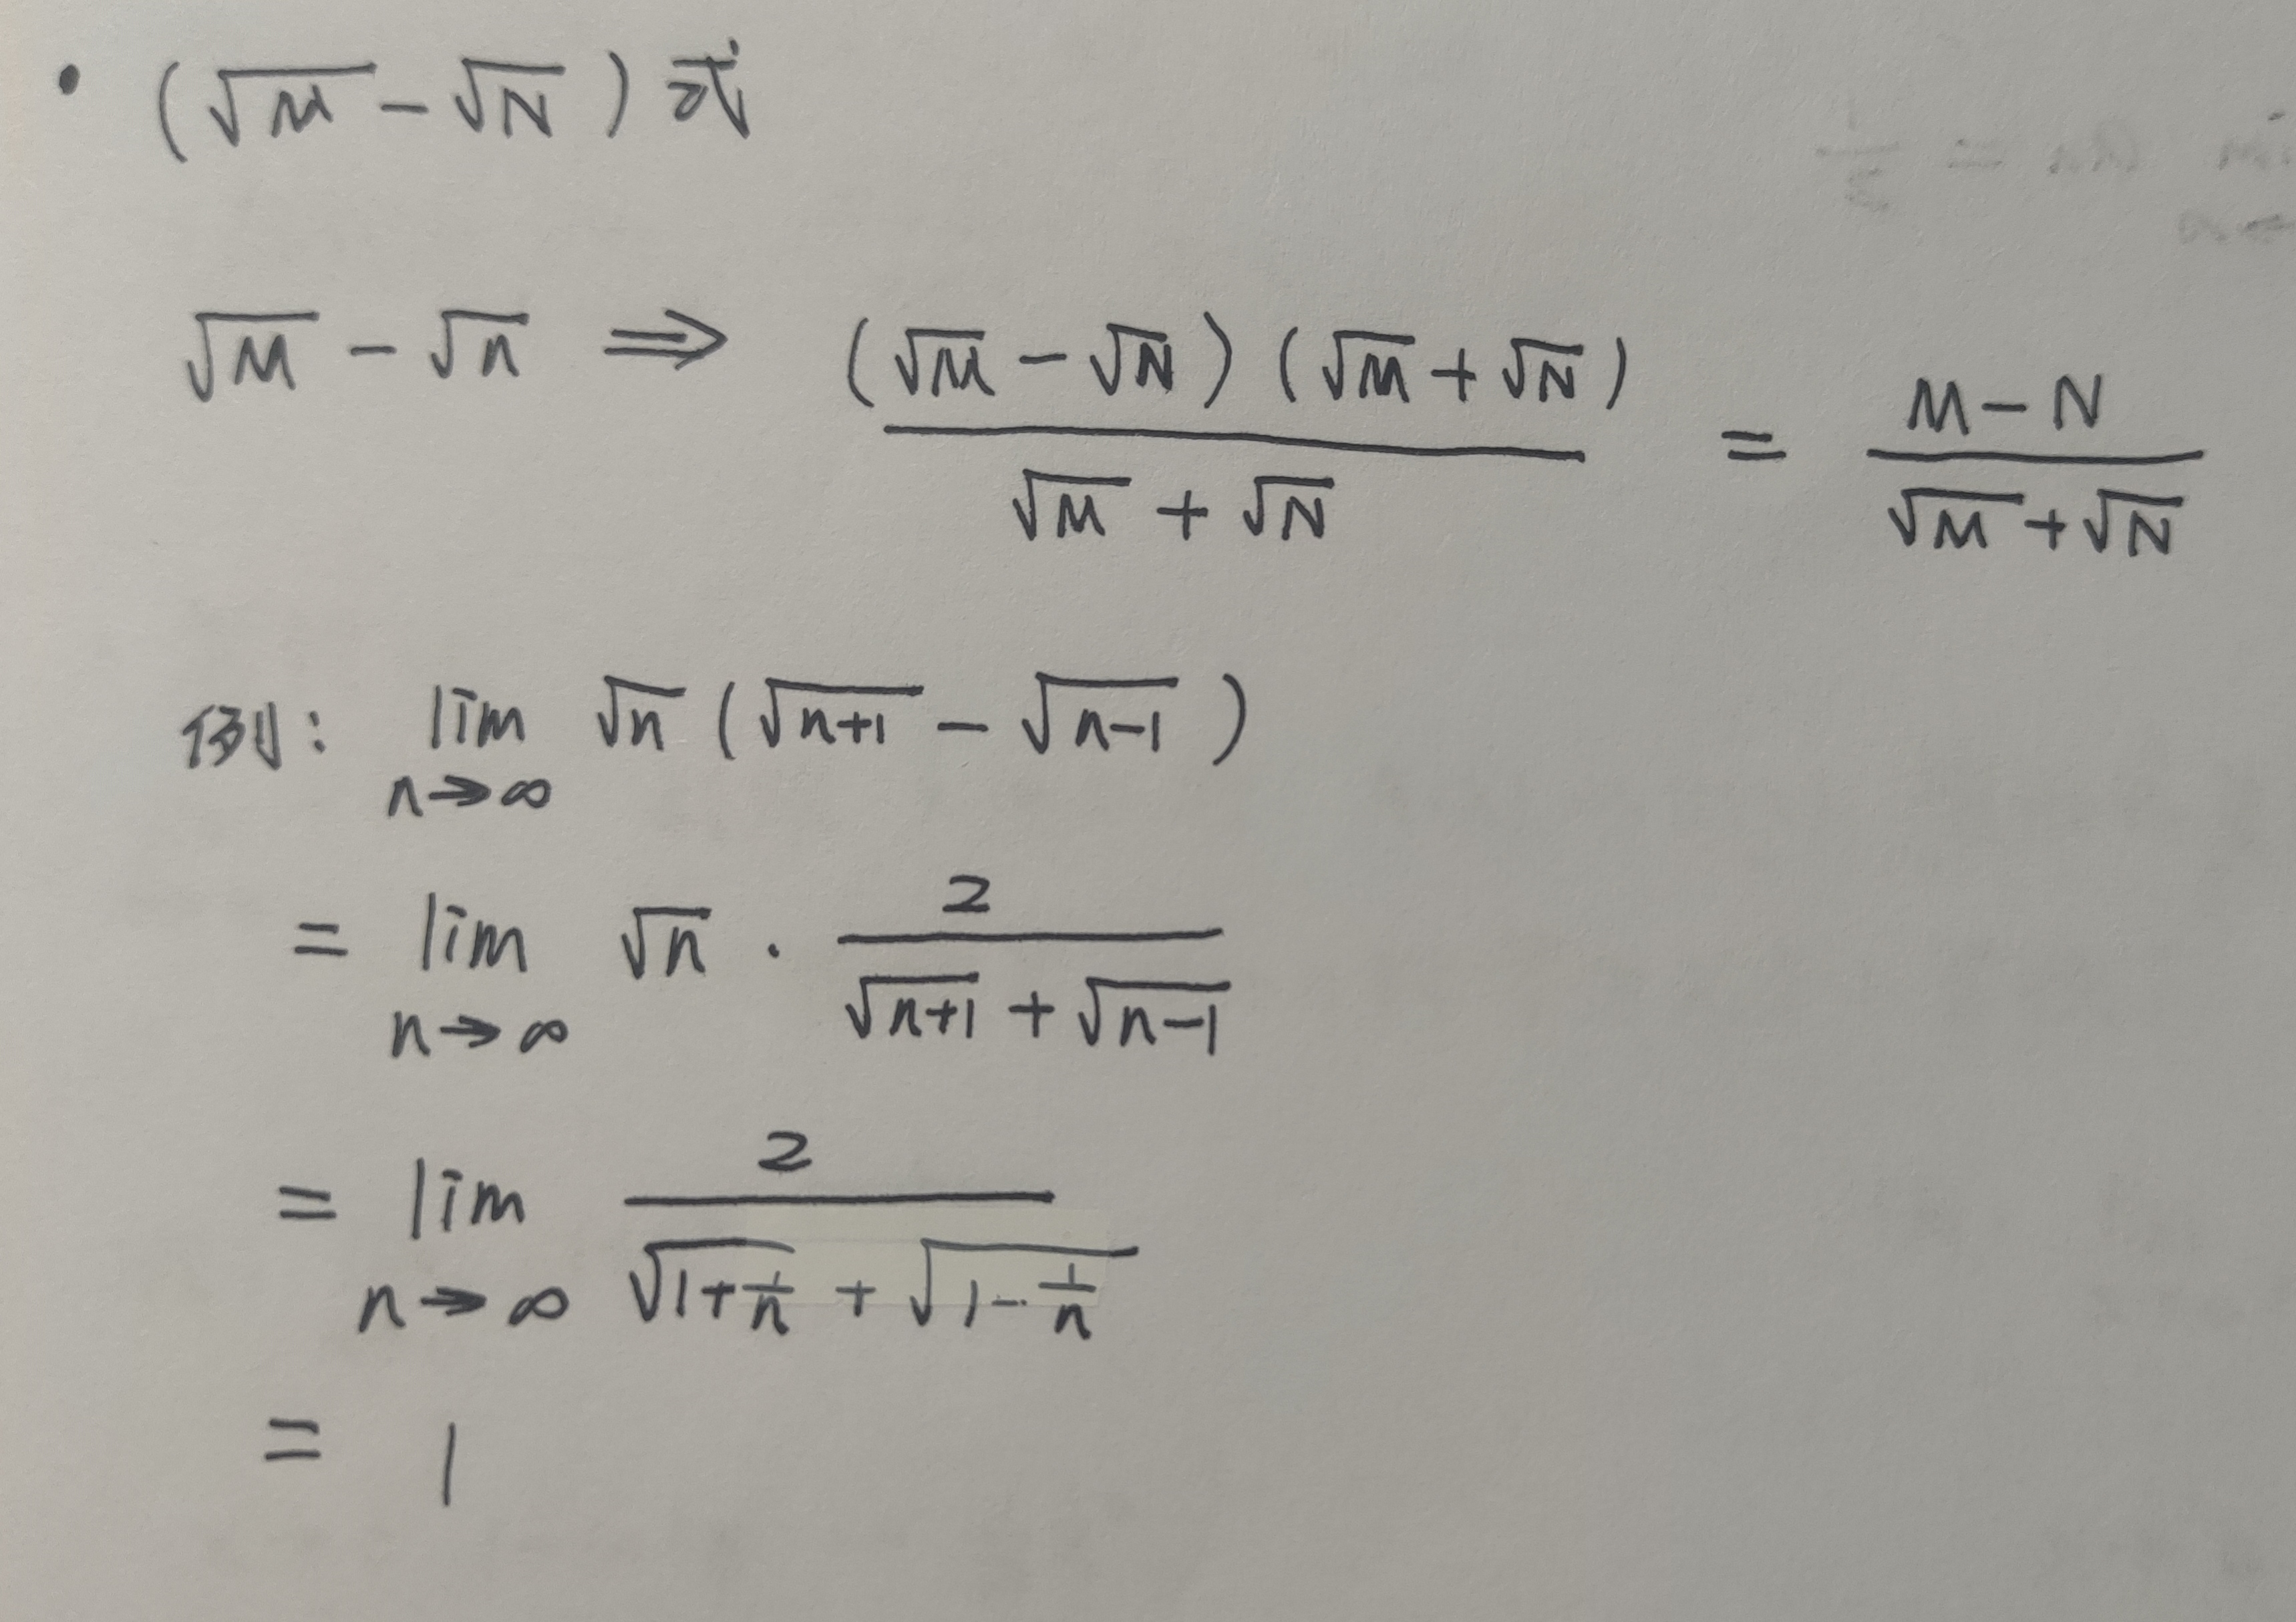 • (√M - √N) 式
√M - √n ⇒ (√M - √N)(√M + √N) / (√M + √N) = (M - N) / (√M + √N)
例: lim n→∞ √n (√(n+1) - √(n-1))
= lim n→∞ √n · 2 / (√(n+1) + √(n-1))
= lim n→∞ 2 / (√(1+1/n) + √(1-1/n))
= 1